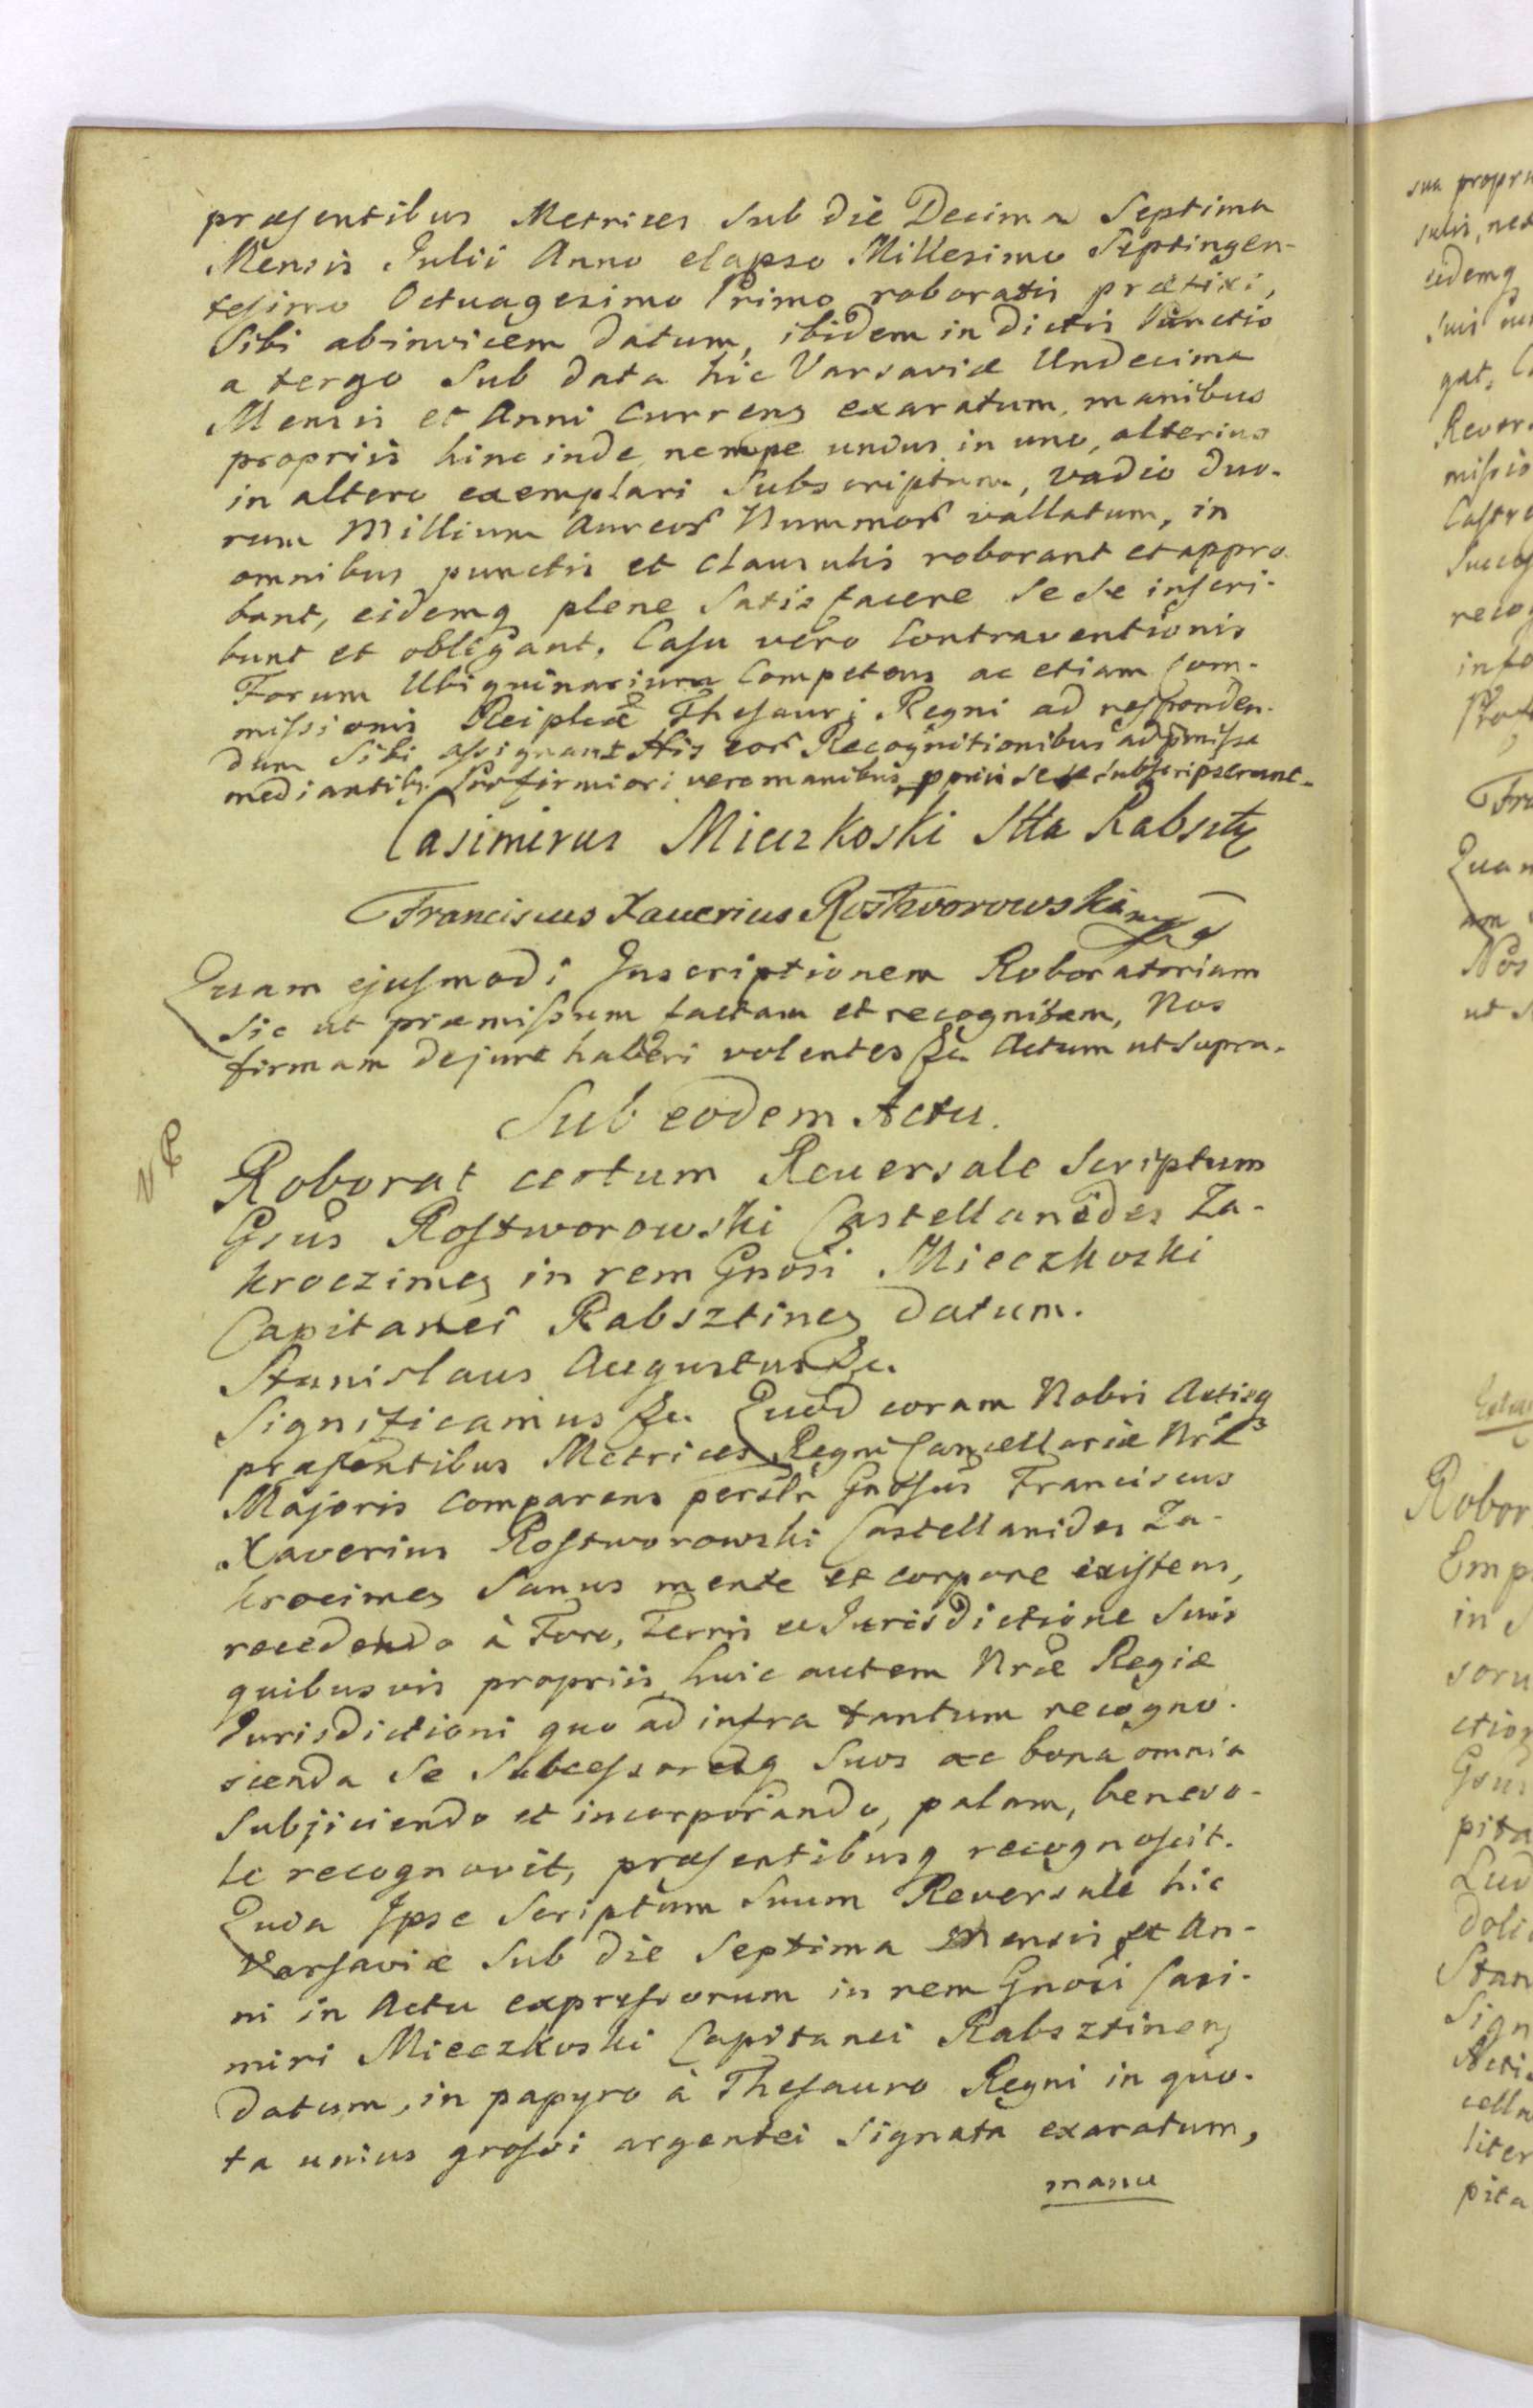 præsentibus Metrices sub die Decima Septima
Mensis Julii Anno elapso Millesimo Septingen-
tesimo Octuagesimo Primo roboratis præfixi,
Sibi abinvicem datum, ibidem in dictis Punctis
a tergo sub data hic Varsaviæ Undecima
Mensis et Anni Currens exaratum, manibus
propriis hinc inde, nempe unius in uno, alterius
in altero exemplari Subscriptum, vadio duo-
rum Millium Aureor Nummor vallatum, in
omnibus punctis et Clausulis roborant et appro
bant, eidemq plene Satisfacere Se se inscri-
bunt et obligant. Casu vero Contraventionis
Forum Ubiquinarium Competens ac etiam Com-
missionis Reiplcæ Thesauri Regni ad responden-
dum Sibi assignant His eor Recognitionibus ad præmissa
mediantibs Pro firmiori vero manibus ppriis se se subscripserunt.
Casimirus Mieczkoski Stta Rabszty
Franciscus Xaverius Rostworowski mp
Quam ejusmodi Inscriptionem Roboratoriam
sic ut præmissum factam et recognitam, Nos
firmam de jure haberi volentes &c. Actum ut supra.
Sub eodem Actu.
Roborat certum Reversale Scriptum
Gsus Rostworowski Castellanides Za-
kroczimes in rem Gnosi Mieczkoski
Capitanei Rabsztines datum.
Stanislaus Augustus &c.
Significamus &c. Quod coram Nobis Actisq
præsentibus Metrices Regni Cancellariæ Nræ
Majoris Comparens persolr Gnosus Franciscus
Xaverius Rostworowski Castellanides Za-
krocimes Sanus mente et corpore existens,
recedendo à Foro, Terris et Jurisdictione suis
quibusvis propriis, huic autem Nræ Regiæ
Jurisdictioni quo ad infra tantum recogno-
scenda Se Subcessoresq Suos ac bona omnia
Subjiciendo et incorporando, palam, benevo-
le recognovit, præsentibusq recognoscit.
Quia Ipse Scriptum Suum Reversale hic
Varsaviæ Sub die Septima Mensis et An-
ni in Actu expressorum in rem Gnosi Casi-
miri Mieczkoski Capitanei Rabsztinens
datum, in papyro à Thesauro Regni in quo-
ta unius grossi argentei Signata exaratum,
manu